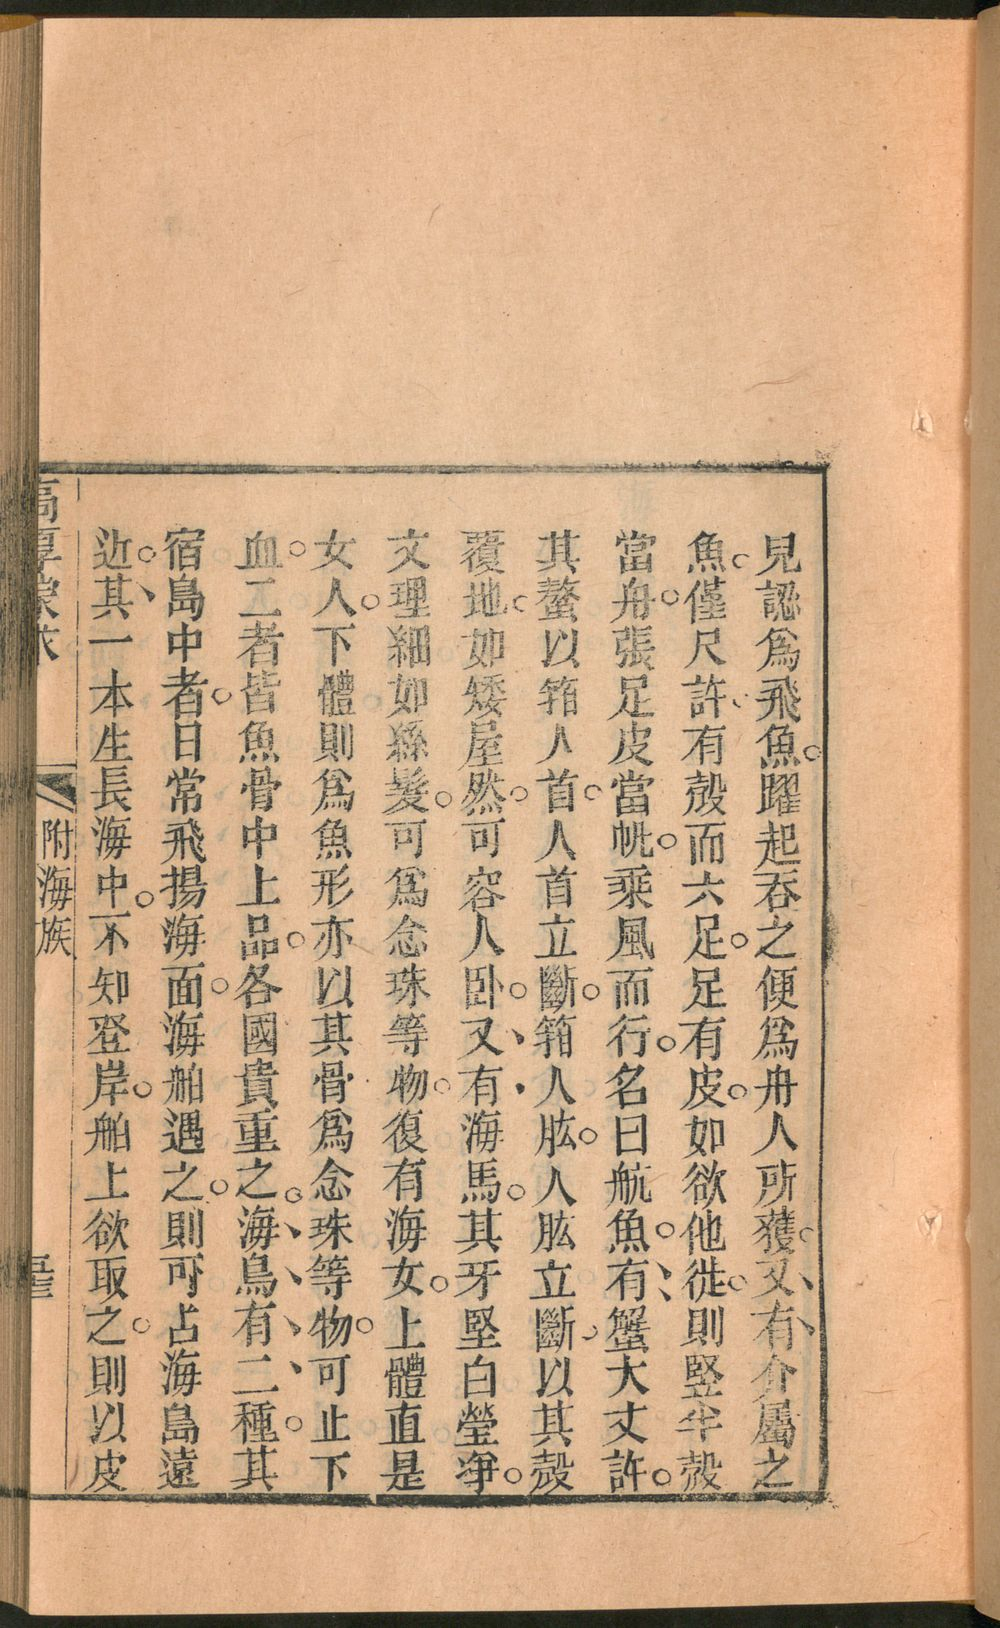 見認爲飛魚躍起吞之便爲舟人所獲又有介屬之
魚僅尺許有殼而六足足有皮如欲他徙則竪半殼
當舟張足皮當帆乘風而行名曰航魚有蟹大丈許
其螯以箝人首人首立斷箝人肱人肱立斷以其殼
覆地如矮屋然可容人卧又有海馬其牙堅白瑩淨
文理細如絲髮可爲念珠等物復有海女上體直是
女人下體則爲魚形亦以其骨爲念珠等物可止下
血二者皆魚骨中上品各國貴重之海鳥有二種其
宿島中者日常飛揚海面海舶遇之則可占海島遠
近其一本生長海中不知登岸舶上欲取之則以皮
高厚蒙求
附海族